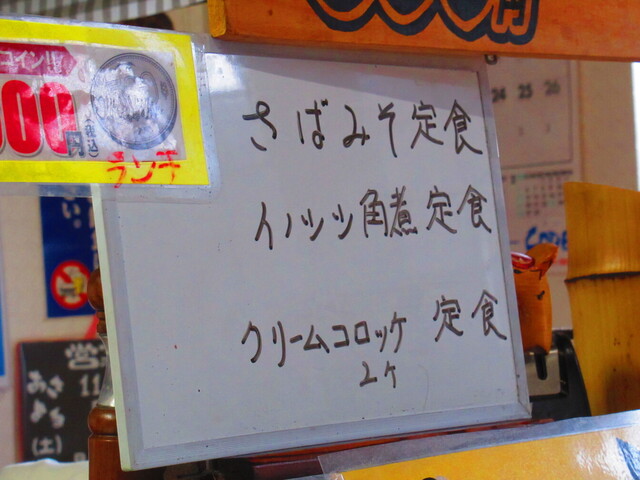 コイン
00円
(税込)
ランチ
さばみそ定食
イノシシ角煮定食
クリームコロッケ定食
2ケ
24 25 26
営
あさ 11
(土)